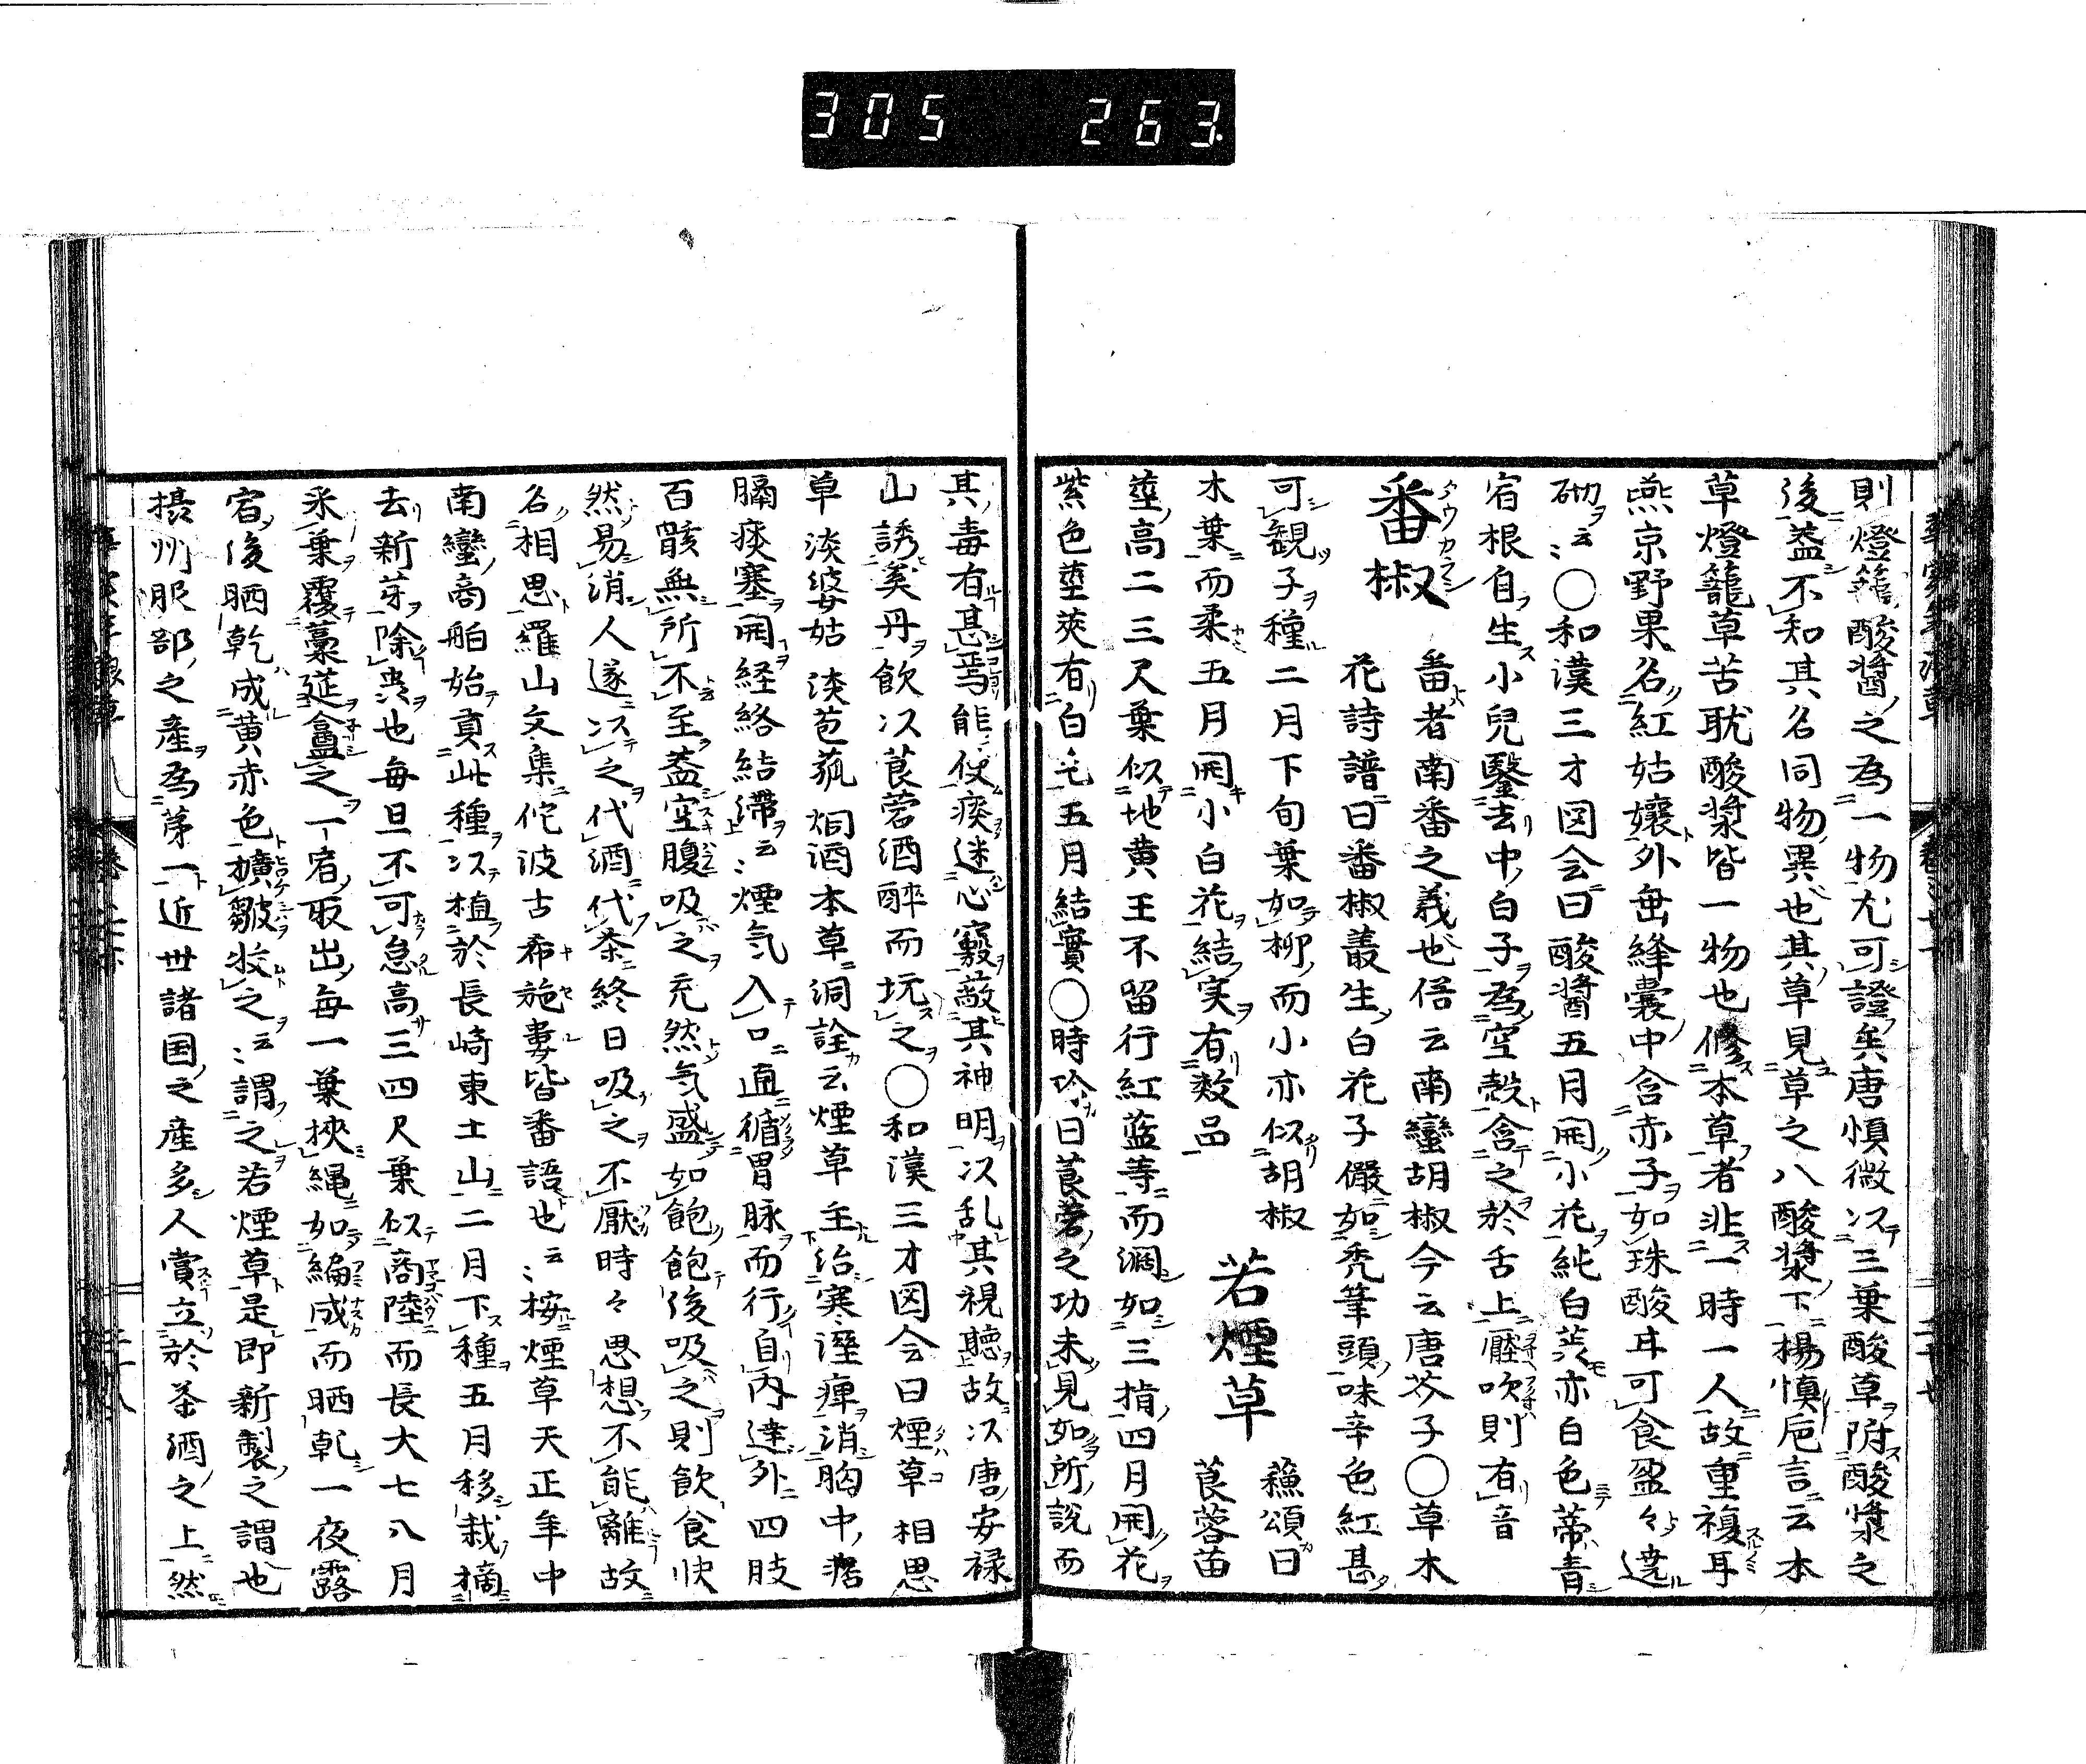 305 263.
則燈籠酸醬之為一物尤可證矣唐慎微以三葉酸草附酸漿之
後蓋不知其名同物異也其草見草之八酸漿下楊慎巵言云本
草燈籠草苦耽酸漿皆一物也修本草者非一時一人故重複耳
燕京野果名紅姑孃外垂絳囊中含赤子如珠酸甘可食盈々遶
砌云〻〇和漢三才図会曰酸醬五月開小花純白蕊亦白色蒂青
宿根自生小兒鑿去中白子為空殻含之於舌上壓吹則有音
番椒
タウカラシ
番者南番之義也俗云南蠻胡椒今云唐芥子〇草木
花詩譜曰番椒叢生白花子儼如禿筆頭味辛色紅甚
可観子種二月下旬葉如柳而小亦似胡椒
木葉而柔五月開小白花結実有数品
若煙草
蘓頌曰
莨蓉苗
莖高二三尺葉似地黄王不留行紅蓝等而濶如三指四月開花
紫色莖莢有白毛五月結實〇時珍曰莨菪之功未見如所說而
其毒有甚焉能使痰迷心竅蔽其神明以乱其視聽故以唐安禄
山誘奚丹飲以莨菪酒醉而坑之〇和漢三才図会曰煙草 相思
草 淡婆姑 淡芭菰 烟酒本草洞詮云煙草主治寒溼痺消胸中
膈痰塞開経絡結滯云〻煙気入口直循胃脉而行自内達外四肢
百骸無所不至蓋空腹吸之充然気盛如飽飽後吸之則飲食快
然易消人遂以之代酒代茶終日吸之不厭時々思想不能離故
名相思羅山文集佗波古希施婁皆番語也云〻按煙草天正年中
南蠻商舶始貢此種以植於長崎東土山二月下種五月移栽摘
去新芽除蛊也毎旦不可怠高三四尺葉似商陸而長大七八月
采葉覆藁莚盦之一宿取出毎一葉挾縄如編成而晒乾一夜露
宿後晒乾成黄赤色擴皺收之云〻謂之若煙草是即新製之謂也
摂州服部之産為第一近世諸国之産多人賞立於茶酒之上然